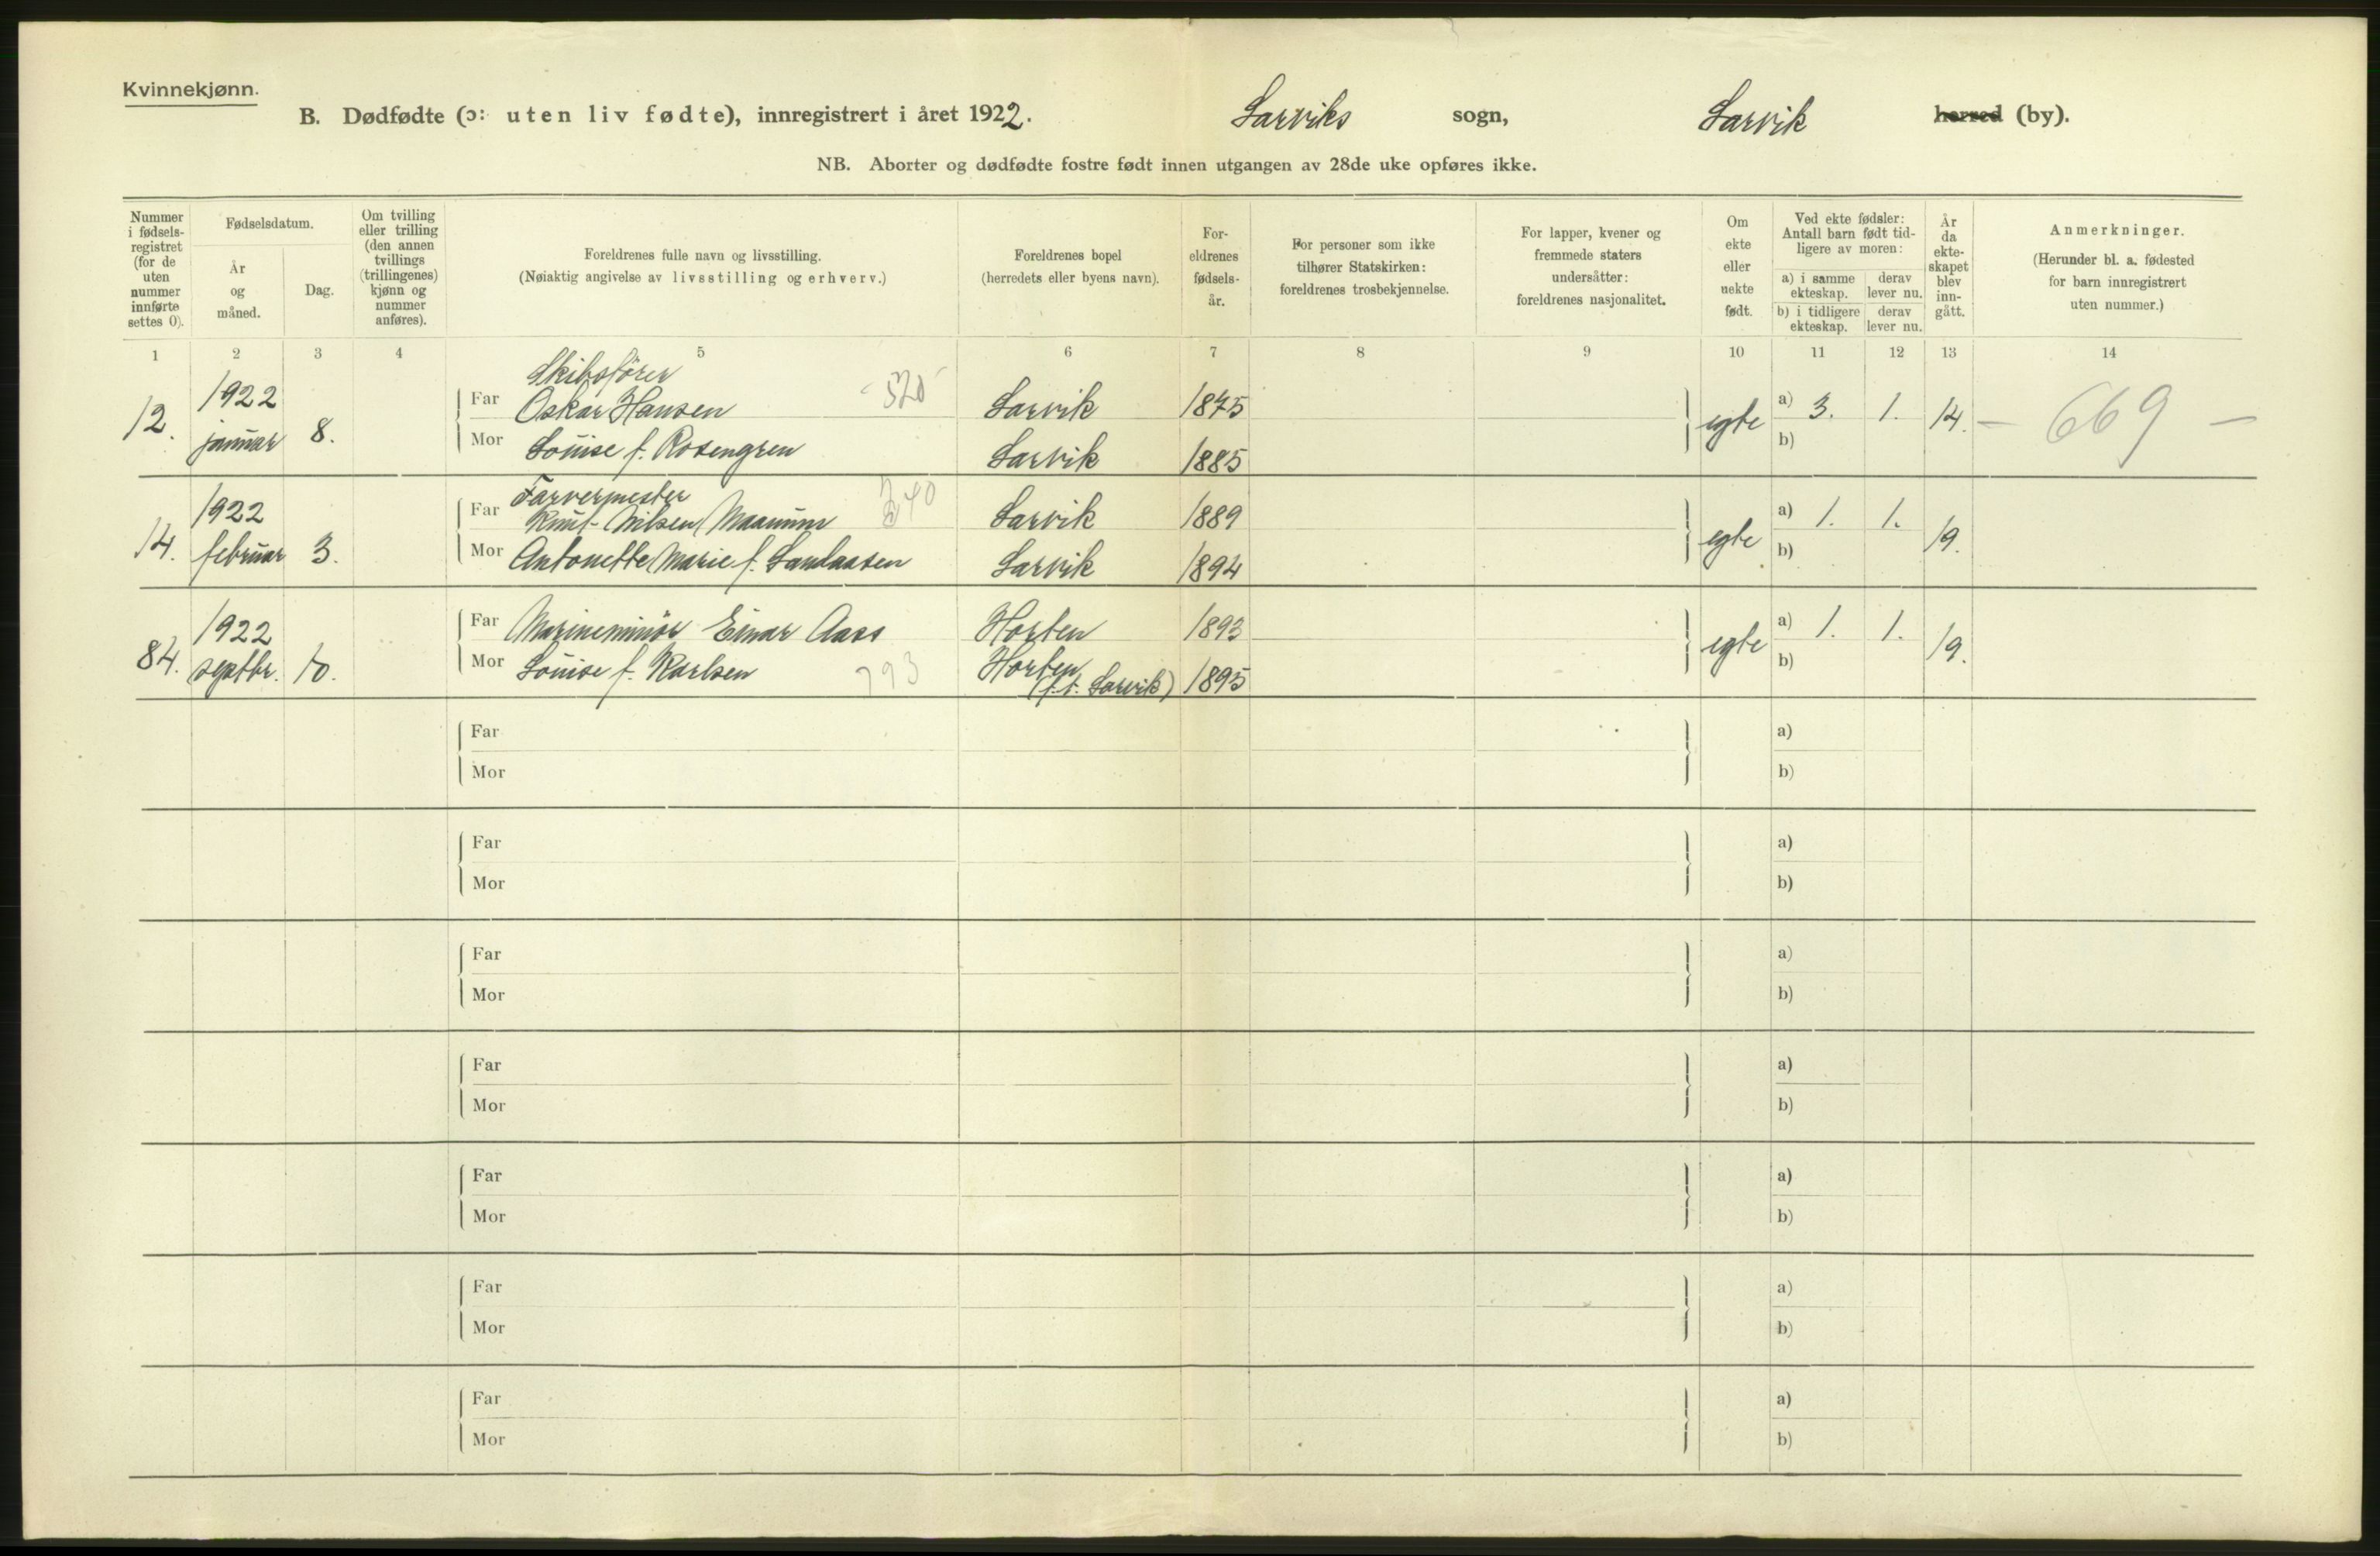 Kvinnekjønn.
B. Dødfødte (ɔ: uten liv fødte), innregistrert i året 1922. Larviks sogn, Larvik herred (by).
NB. Aborter og dødfødte fostre født innen utgangen av 28de uke opføres ikke.
Nummer i fødselsregistret (for de uten nummer innførte settes 0).
Fødselsdatum.
År og måned.
Dag.
Om tvilling eller trilling (den annen tvillings (trillingenes) kjønn og nummer anføres).
Foreldrenes fulle navn og livsstilling.
(Nøiaktig angivelse av livsstilling og erhverv.)
Foreldrenes bopel
(herredets eller byens navn).
For-
eldrenes
fødsels-
år.
For personer som ikke
tilhører Statskirken:
foreldrenes trosbekjennelse.
For lapper, kvener og
fremmede staters
undersåtter:
foreldrenes nasjonalitet.
Om
ekte
eller
uekte
født.
Ved ekte fødsler:
Antall barn født tid-
ligere av moren:
a) i samme ekteskap.
derav lever nu.
b) i tidligere ekteskap.
derav lever nu.
År
da
ekte-
skapet
blev
inn-
gått.
Anmerkninger.
(Herunder bl. a. fødested
for barn innregistrert
uten nummer.)
1 2 3 4 5 6 7 8 9 10 11 12 13 14
12. 1922 januar 8.
Far Skibsfører Oskar Hansen 520 Larvik 1875
Mor Louise f. Rosengren Larvik 1885
egte a) 3. 1. 14. - 669 -
b)
14. 1922 februar 3.
Far Farvermester Knut Nilsen Maanum 240 Larvik 1889
Mor Antonette Marie f. Sandaasen Larvik 1894
egte a) 1. 1. 19.
b)
84. 1922 septbr. 10.
Far Marineminör Einar Aass Horten 1893
Mor Louise f. Karlsen 793 Horten (f.t. Larvik) 1895
egte a) 1. 1. 19.
b)
Far a)
Mor b)
Far a)
Mor b)
Far a)
Mor b)
Far a)
Mor b)
Far a)
Mor b)
Far a)
Mor b)
Far a)
Mor b)